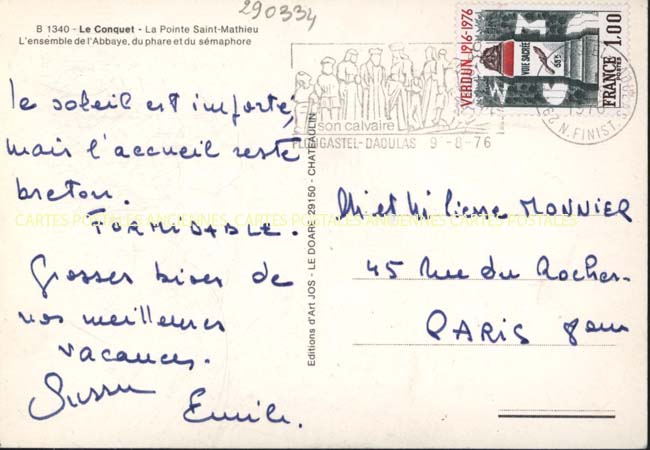 290334
B 1340 - Le Conquet - La Pointe Saint-Mathieu
L'ensemble de l'Abbaye, du phare et du sémaphore
VERDUN 1916-1976
VOIE SACRÉE
FRANCE 1.00
POSTES
son calvaire
PLOUGASTEL-DAOULAS 9-8-76
1976
29 N. FINIST.
le soleil est importé,
mais l'accueil reste
breton.
FORMIDABLE.
Grosses bises de
nos meilleures
vacances.
Emile.
Editions d'Art JOS - LE DOARE 29150 - CHATEAULIN
CARTES POSTALES ANCIENNES CARTES POSTALES ANCIENNES CARTES POSTALES
M et Me Pierre MONNIER
45 Rue du Rocher.
PARIS 8em